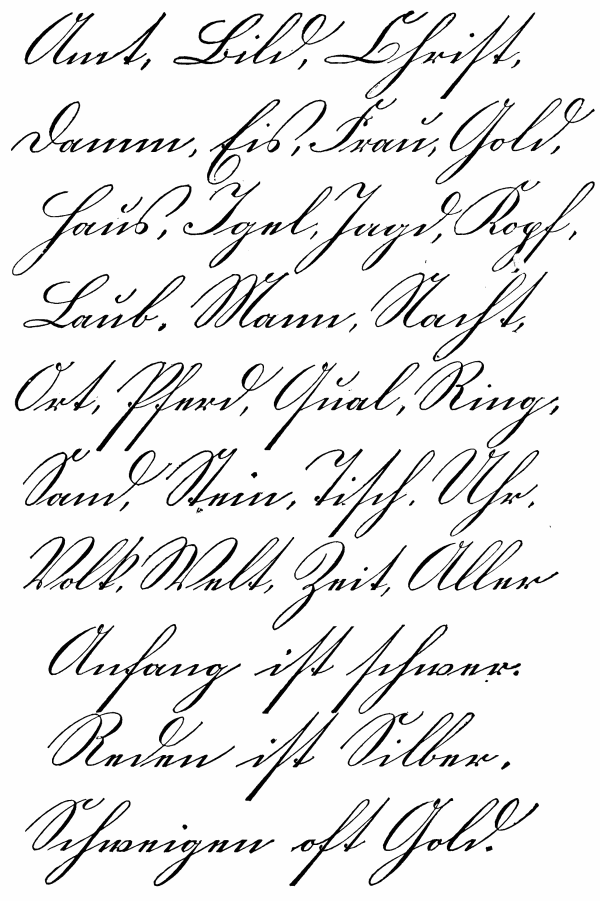 Amt, Bild, Christ,
Damm, Eis, Frau, Gold,
Haus, Igel, Jagd, Kopf,
Laub, Mann, Nacht,
Ort, Pferd, Qual, Ring,
Sand, Stein, Tisch, Uhr,
Volk, Welt, Zeit, Aller
Anfang ist schwer.
Reden ist Silber,
Schweigen oft Gold.